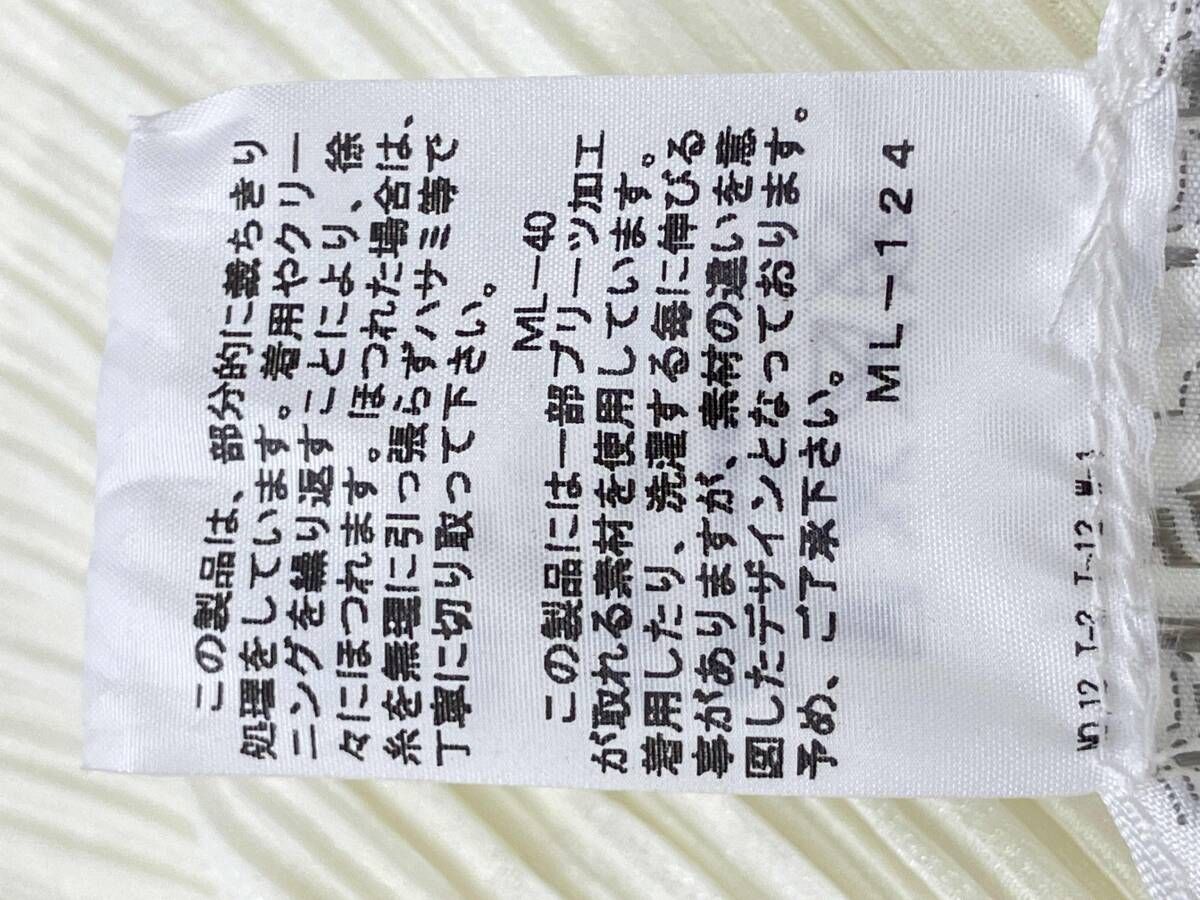 この製品は、部分的に裁ちきり
処理をしています。着用やクリー
ニングを繰り返すことにより、徐
々にほつれます。ほつれた場合は、
糸を無理に引っ張らずハサミ等で
丁寧に切り取って下さい。
ML-40
この製品には一部プリーツ加工
が取れる素材を使用しています。
着用したり、洗濯する毎に伸びる
事がありますが、素材の違いを意
図したデザインとなっております。
予め、ご了承下さい。
ML-124